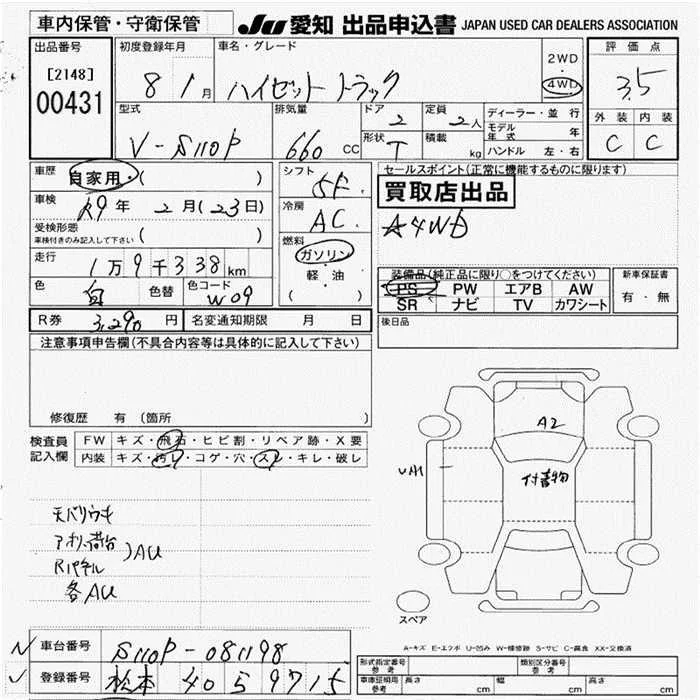 車内保管・守衛保管
JU 愛知 出品申込書 JAPAN USED CAR DEALERS ASSOCIATION
出品番号
[2148]
00431
初度登録年月
8 1月
車名・グレード
ハイゼットトラック
2WD
・
4WD
評価点
3.5
外装 内装
C C
型式
V-S110P
排気量
660 CC
ドア
2
定員
2人
形状
T
積載
kg
ディーラー・並行
モデル年式 年
ハンドル 左・右
車歴
自家用・( )
車検
R9年 2月(23日)
受検形態
車検付きのみ記入して下さい ( )
走行
1万9千338km
色
白
色替
色コード
W09
シフト
5F
冷房
AC
燃料
ガソリン
・
軽・油
( )
セールスポイント(正常に機能するものに限ります)
買取店出品
☆4WD
装備品(純正品に限り○をつけてください)
PS PW エアB AW
SR ナビ TV カワシート
新車保証書
有・無
R券 3,290 円
名変通知期限 月 日
後日品
注意事項申告欄(不具合内容等は具体的に記入して下さい)
修復歴 有(箇所 )
検査員
記入欄
FW キズ・飛石・ヒビ割・リペア跡・X要
内装 キズ・汚レ・コゲ・穴・スレ・キレ・破レ
天バリウキ
アオリ、荷台
Rパネル
)AU
各AU
A2
UA1
付着物
スペア
A-キズ E-エクボ U-凹み W-補修跡 S-サビ C-腐食 XX-交換済
車台番号
S110P-081198
登録番号
松本 40 59715
型式指定番号
参考
類別区分番号
参考
車庫証明用
参考
長さ cm
幅 cm
高さ cm